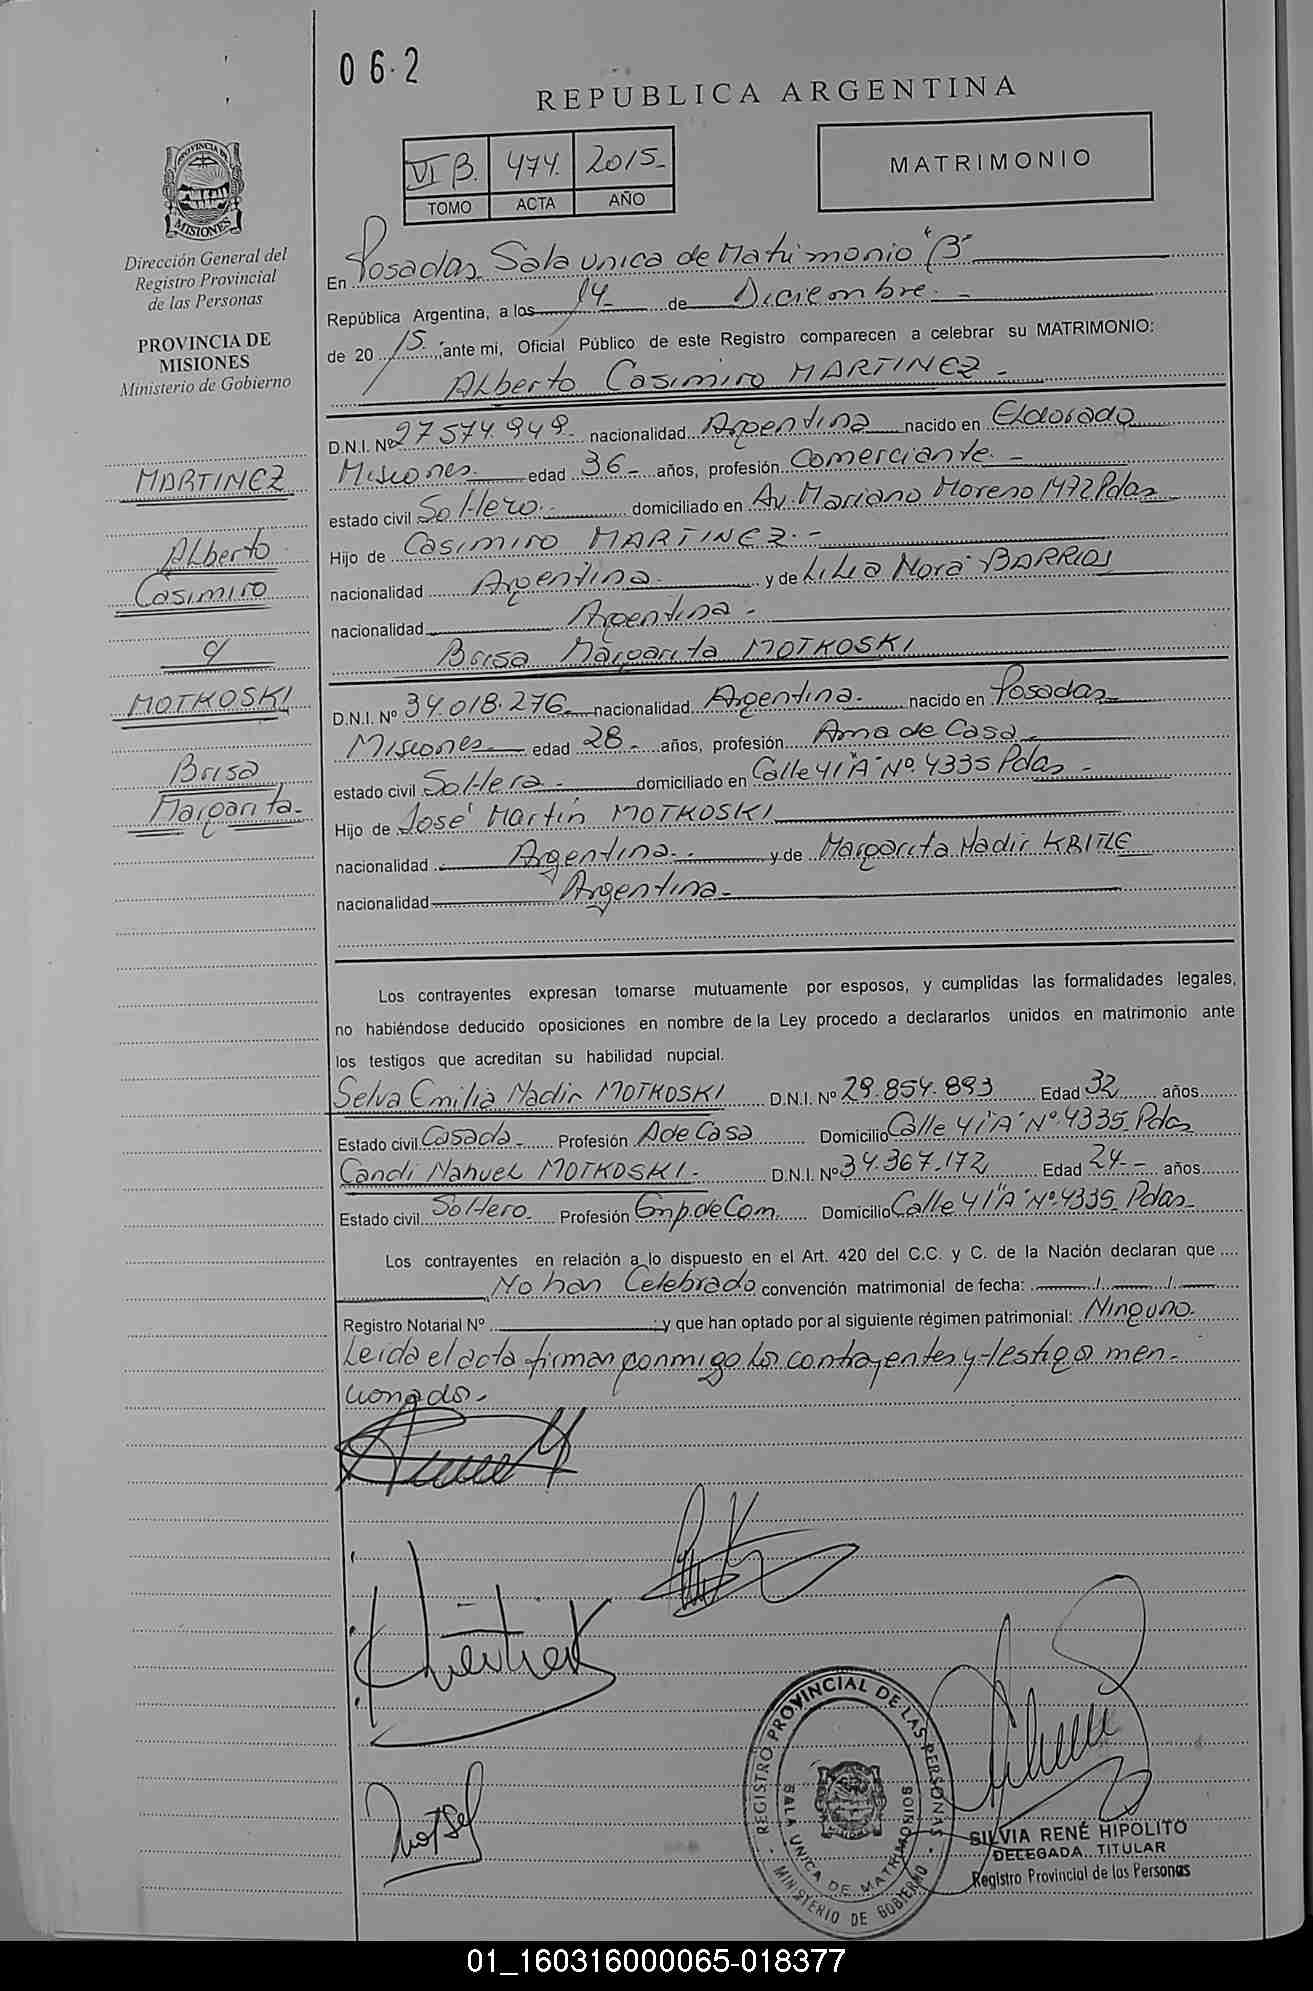 06.2
REPUBLICA ARGENTINA
VI B. 474. 2015.-
TOMO ACTA AÑO
MATRIMONIO
PROVINCIA DE
MISIONES
Dirección General del
Registro Provincial
de las Personas
PROVINCIA DE
MISIONES
Ministerio de Gobierno
MARTINEZ
Alberto
Casimiro
c/
MOTKOSKI
Brisa
Margarita.-
En Posadas Sala unica de Matrimonio "B"
República Argentina, a los 14 de Diciembre.-
de 20 15. ante mi, Oficial Público de este Registro comparecen a celebrar su MATRIMONIO:
Alberto Casimiro MARTINEZ.-
D.N.I. Nº 27.574.949.- nacionalidad Argentina nacido en Eldorado
Misiones.- edad 36.- años, profesión Comerciante.-
estado civil Soltero.- domiciliado en Av. Mariano Moreno 1472 Pdas
Hijo de Casimiro MARTINEZ.-
nacionalidad Argentina y de Lilia Nora BARRIOS
nacionalidad Argentina.-
Brisa Margarita MOTKOSKI
D.N.I. Nº 34.018.276.- nacionalidad Argentina.- nacido en Posadas
Misiones.- edad 28.- años, profesión Ama de Casa.-
estado civil Soltera.- domiciliado en Calle 41 "A" Nº. 4335 Pdas.-
Hijo de José Martín MOTKOSKI
nacionalidad Argentina.- y de Margarita Nadir
nacionalidad Argentina.-
Los contrayentes expresan tomarse mutuamente por esposos, y cumplidas las formalidades legales,
no habiéndose deducido oposiciones en nombre de la Ley procedo a declararlos unidos en matrimonio ante
los testigos que acreditan su habilidad nupcial.
Selva Emilia Nadir MOTKOSKI D.N.I. Nº 29.854.893 Edad 32 años
Estado civil Casada.- Profesión A de Casa Domicilio Calle 41 "A" Nº. 4335 Pdas
Candi Nahuel MOTKOSKI.- D.N.I. Nº 34.367.172 Edad 24.- años
Estado civil Soltero.- Profesión Emp. de Com. Domicilio Calle 41 "A" Nº. 4335 Pdas.-
Los contrayentes en relación a lo dispuesto en el Art. 420 del C.C. y C. de la Nación declaran que
No han Celebrado convención matrimonial de fecha: / /
Registro Notarial Nº ; y que han optado por al siguiente régimen patrimonial: Ninguno.
Leida el acta firman conmigo los contrayentes y testigo men-
cionados.-
REGISTRO PROVINCIAL DE LAS PERSONAS
SALA UNICA DE MATRIMONIOS
MINISTERIO DE GOBIERNO
SILVIA RENÉ HIPÓLITO
DELEGADA TITULAR
Registro Provincial de las Personas
01_160316000065-018377